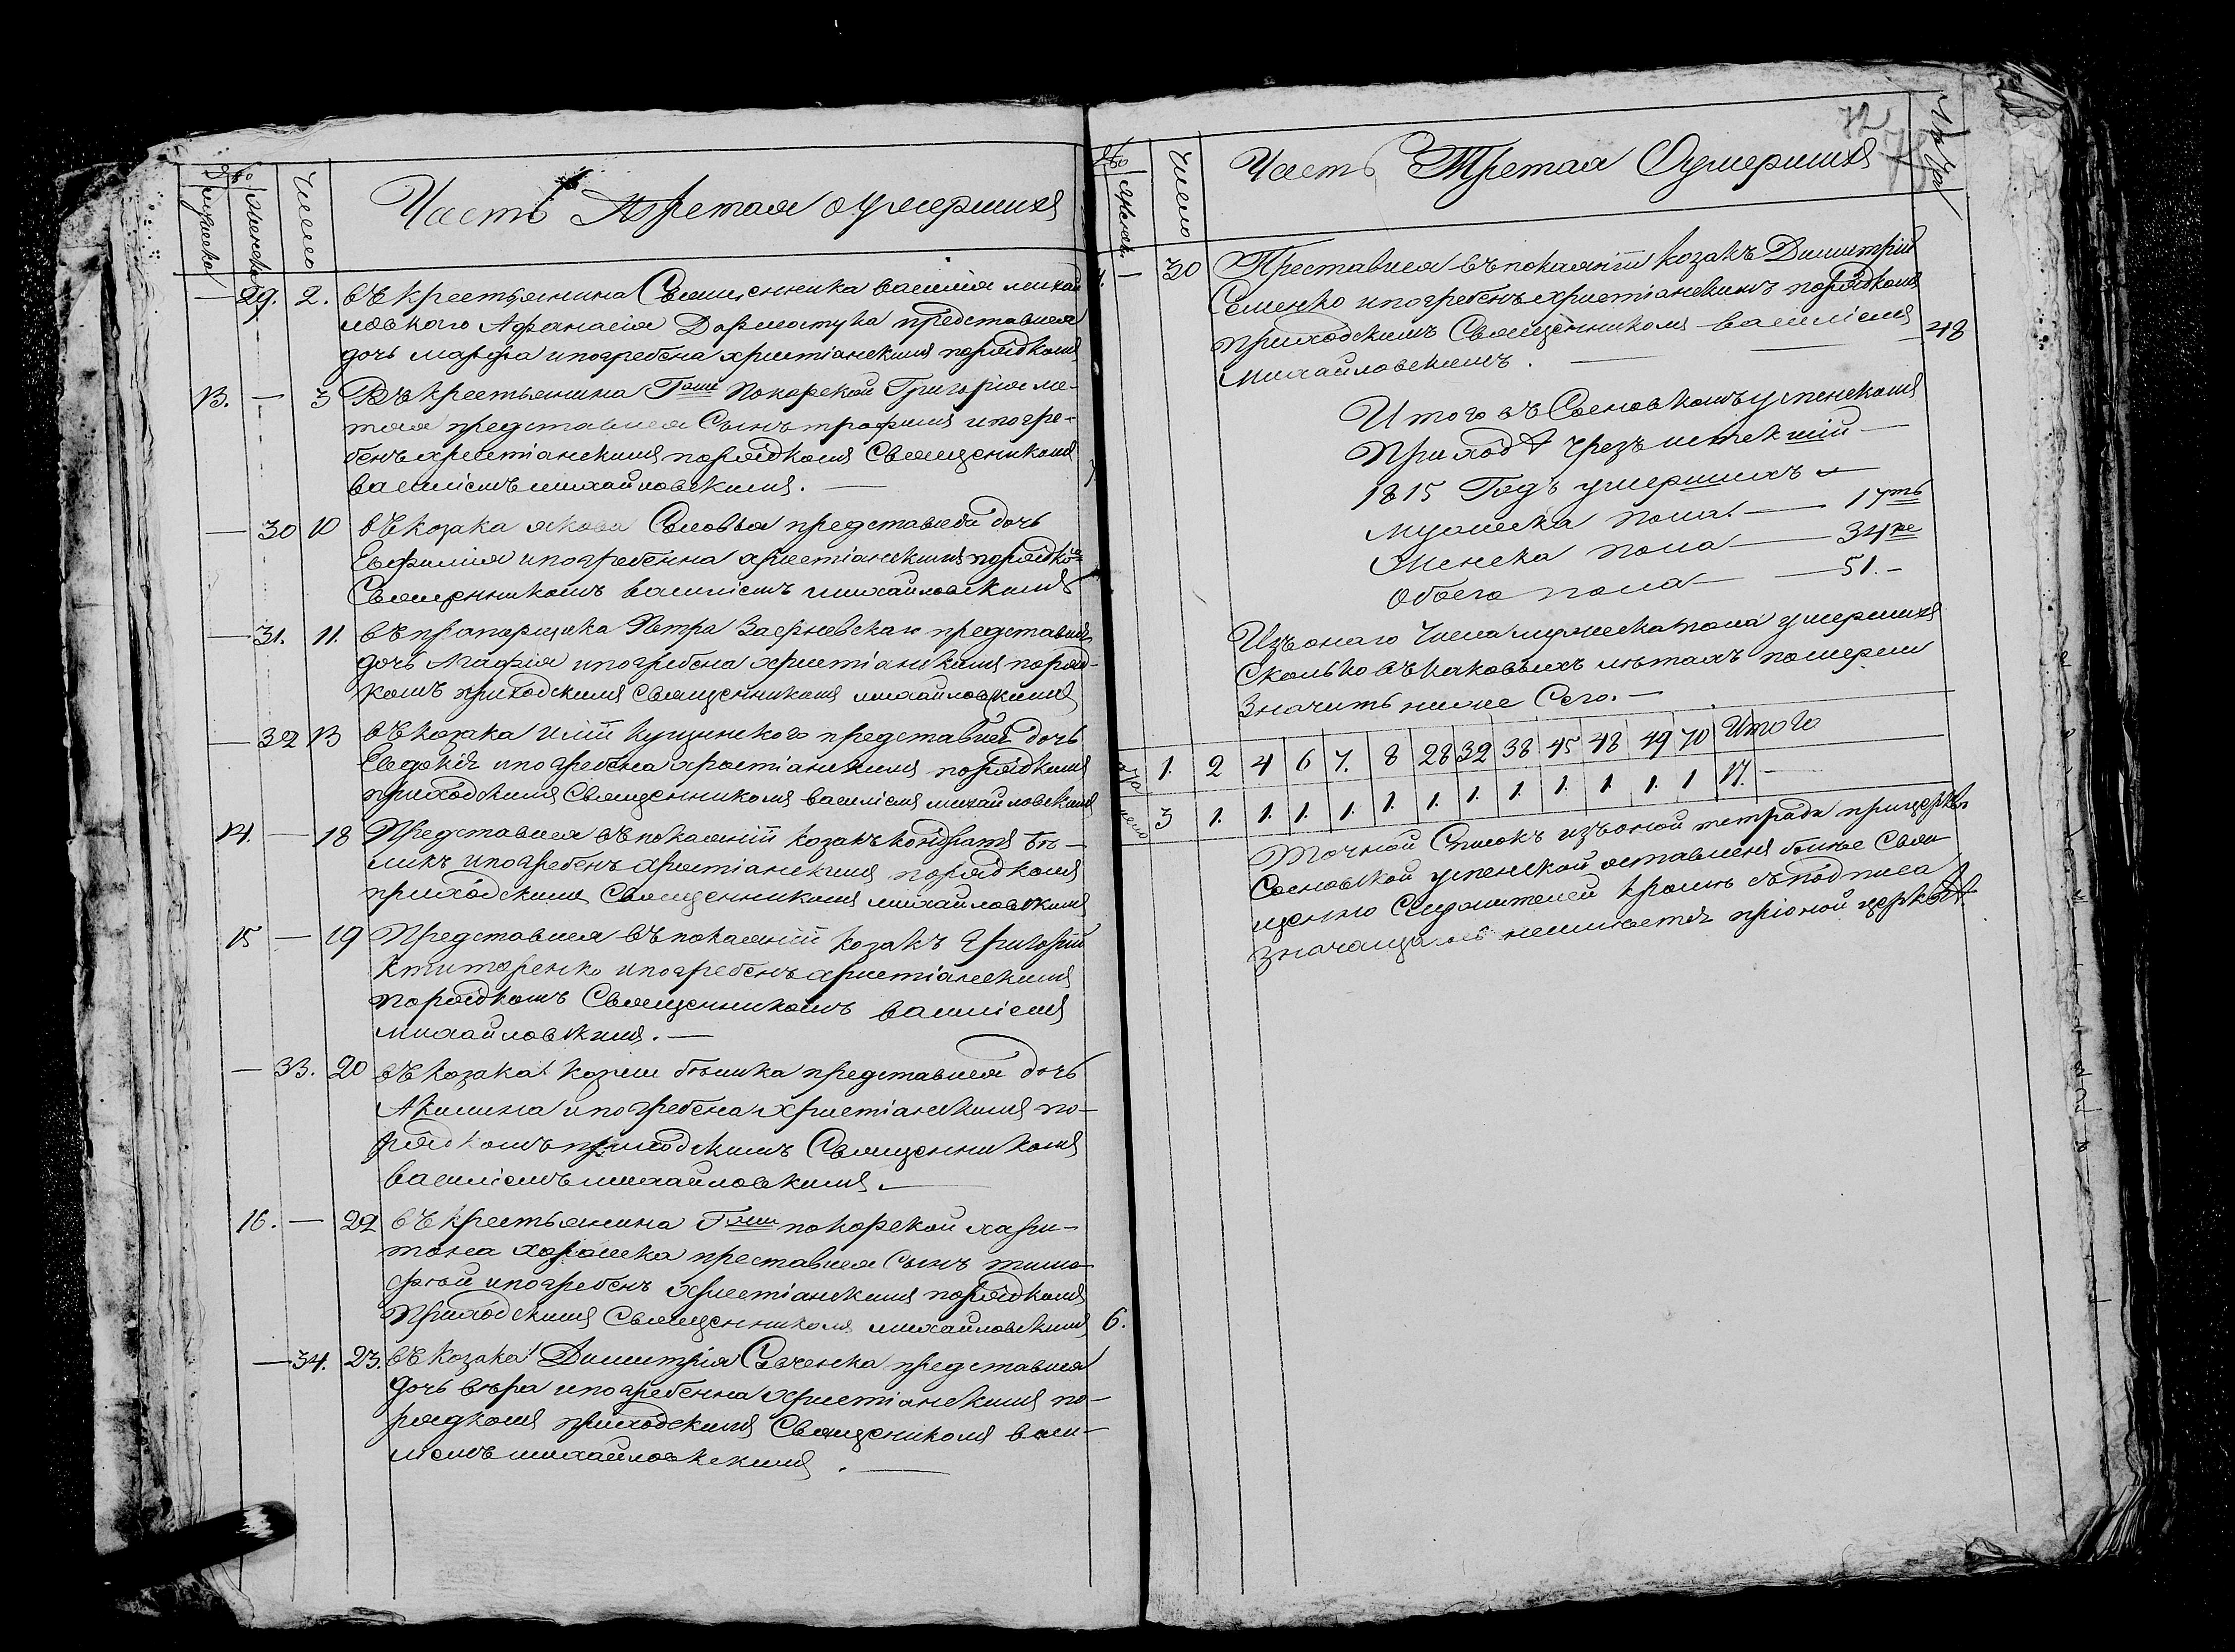 №
Мужеска
Женска
Число
Часть Третая оумершихъ
— 29. 2. въ крестьянина Священника василія михай
ловского Афанасія представися
дочь марфа и погребена христіанскимъ порядкомъ
13. — 3 Въ крестьянина Гжи Покорской Григорія ме-
представися Сынъ трофимъ и погре-
бенъ христіанскимъ порядкомъ Священикомъ
василіемъ михайловскимъ. —
— 30 10 въ козака якова Соловья представися дочь
Евфимія и погребенна христіанскимъ порядко
Священникомъ василіемъ михайловскимъ
— 31. 11. въ прапорщика Петра представися
дочь Марфія и погребена христіанскимъ поряд-
комъ приходскимъ священникомъ михайловскимъ
— 32 13 въ козака Иліи Кущинского представися дочь
Евдокія и погребена христіанскимъ порядкомъ
приходскимъ Священникомъ василіемъ михайловскимъ
14. — 18 Представися въ покаяніи козакъ кондратъ бѣ-
ликъ и погребенъ христіанскимъ порядкомъ
приходскимъ Священникомъ михайловскимъ
15 — 19 Представися въ покаяніи козакъ Григорій
Ктиторенко и погребенъ христіанскимъ
порядкомъ Священникомъ василіемъ
михайловскимъ. —
— 33. 20 въ козака козми бѣлика представися дочь
Акилина и погребена христіанскимъ по-
рядкомъ приходскимъ Священникомъ
василіемъ михайловскимъ. —
16. — 22 въ крестьянина Гжи покорской хари-
тона преставися Сынъ тимо-
фей и погребенъ христіанскимъ порядкомъ
Приходскимъ Священникомъ михайловскимъ
— 34. 23. въ козака Димитрія представися
дочь вѣра и погребенна христіанскимъ по-
рядкомъ приходскимъ Священикомъ васи-
ліемъ михайловскимъ. —
6.
72
№
Женск.
Число
Часть Третая Оумершихъ
— 30 Преставися въ покаяніи козакъ Димитрій
Семенко и погребенъ христіанскимъ порядкомъ
приходскимъ Священникомъ василіемъ
михайловскимъ. — 48
Итого въ Сосновкомъ успенскомъ
Приходѣ чрезъ истекшій —
1815 Годъ умершихъ —
Мужеска пола — 17ть
Женска пола — 34ре
Обоего пола — 51.-
Изъ онаго Числа мужеска пола умершихъ
Сколько въ каковыхъ лѣтахъ померли
Значитъ ниже Сего. —
1. 2 4 6 7. 8 28 32 38 45 48 49 70 Итого
3 1. 1. 1. 1. 1. 1. 1. 1. 1. 1. 1. 1 17. —
Точной Списокъ изъ оной тетради при церкви
Сосновской успенской оставленъ более Свя
щенно Служителей кромѣ въ подписа
Значащихъ неимѣется при оной церквѣ